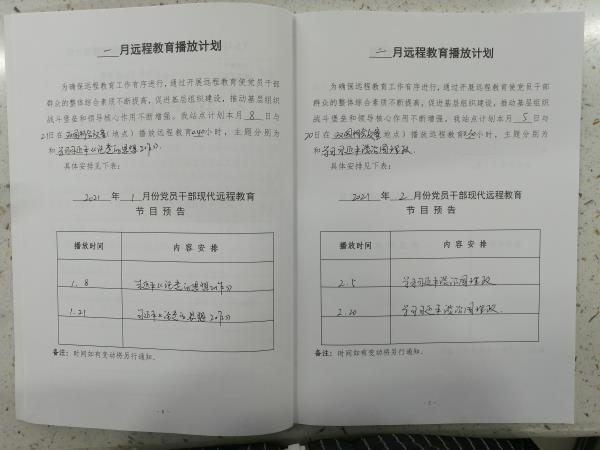 一 月远程教育播放计划
为确保远程教育工作有序进行，通过开展远程教育使党员干部
群众的整体综合素质不断提高，促进基层组织建设，推动基层组织
战斗堡垒和领导核心作用不断增强。我站点计划本月 8 日与
21日在 (地点)播放远程教育 小时，主题分别为
和
具体安排见下表：
2021 年 1 月份党员干部现代远程教育
节目预告
播放时间 内容安排
1.8
1.21
备注：时间如有变动将另行通知。
- 1 -
二 月远程教育播放计划
为确保远程教育工作有序进行，通过开展远程教育使党员干部
群众的整体综合素质不断提高，促进基层组织建设，推动基层组织
战斗堡垒和领导核心作用不断增强。我站点计划本月 5 日与
20日在 (地点)播放远程教育 小时，主题分别为
和学习习近平谈治国理政.
具体安排见下表：
2021 年 2 月份党员干部现代远程教育
节目预告
播放时间 内容安排
2.5 学习习近平谈治国理政
2.20 学习习近平谈治国理政.
备注：时间如有变动将另行通知。
- 2 -